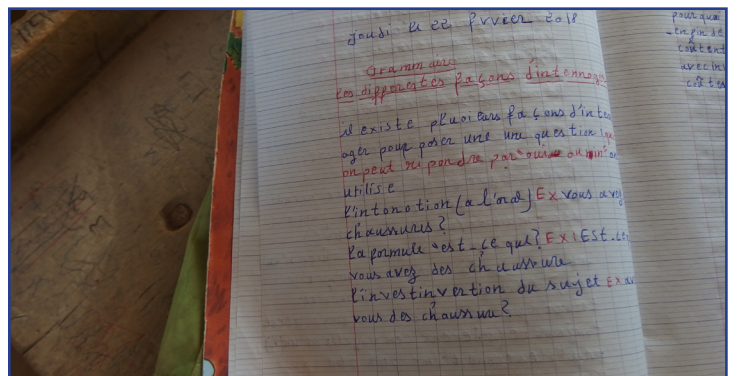 jeudi le 22 fvvier 2018
Grammaire
Les differentes façons d'interroge
il existe plusieurs façons d'inte
ager pour poser une une question
on peut re pondre par "oui" ou "nin" on
utilise
l'intonation (a l'oral) Ex vous avez
chaussures?
La formule "est-ce que? Ex: Est-ce
vous avez des chaussure
l'investinvertion du sujet Ex av
vous des chaussure?
pourquoi
- en fin de
coûtent
avec
coûtes